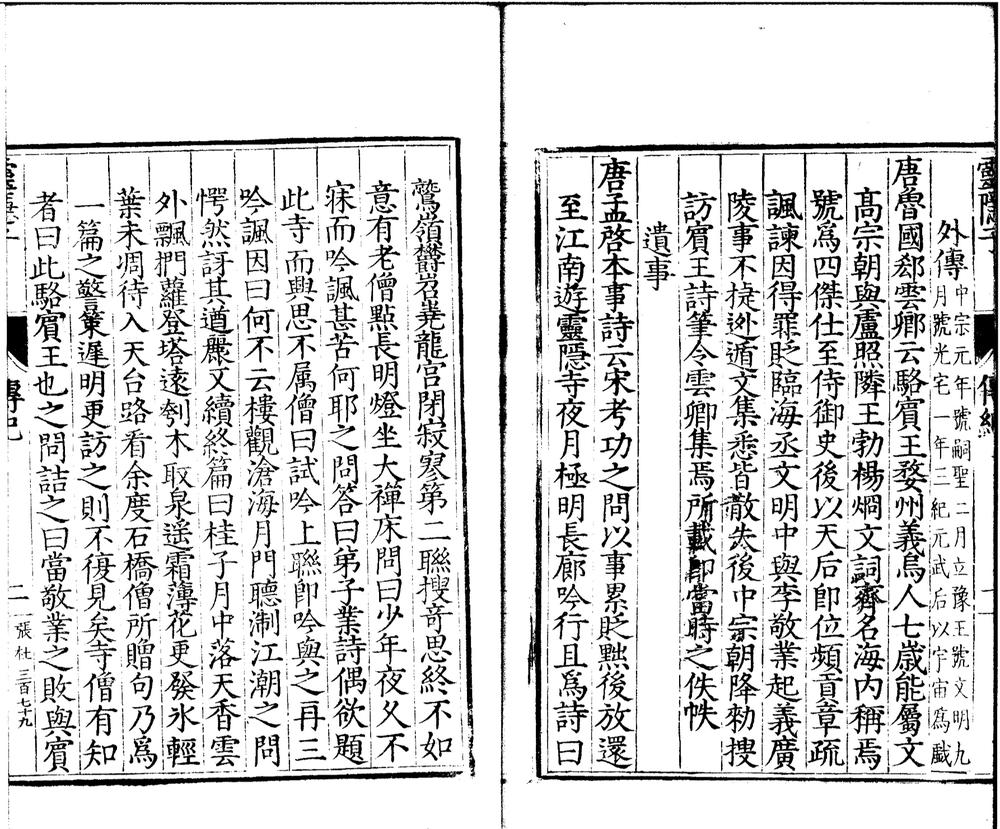 靈隱子
傳紀
外傳
中宗元年號嗣聖二月立豫王號文明九
月號光宅一年三紀元武后以宇宙爲戲
唐魯國郄雲卿云駱賓王婺州義烏人七歲能屬文
髙宗朝與盧照隣王勃楊烱文詞齊名海内稱焉
號爲四傑仕至侍御史後以天后即位頻貢章疏
諷諫因得罪貶臨海丞文明中與李敬業起義廣
陵事不捷迯遁文集悉皆散失後中宗朝降勑搜
訪賓王詩筆令雲卿集焉所載即當時之佚帙
遺事
唐孟啓本事詩云宋考功之問以事累貶黜後放還
至江南遊靈隱寺夜月極明長廊吟行且爲詩曰
鷲嶺欝岧堯龍宫閉寂寥第二聯搜竒思終不如
意有老僧㸃長明燈坐大禪床問曰少年夜久不
寐而吟諷甚苦何耶之問答曰弟子業詩偶欲題
此寺而興思不属僧曰試吟上聯即吟與之再三
吟諷因曰何不云樓觀滄海月門聽淛江潮之問
愕然訝其遒麗又續終篇曰桂子月中落天香雲
外飄捫蘿登塔遠刳木取泉遥霜薄花更發氷輕
葉未凋待入天台路看余度石橋僧所贈句乃爲
一篇之警策遲明更訪之則不復見矣寺僧有知
者曰此駱賓王也之問詰之曰當敬業之敗與賓
傳紀
二
張杜
三百七十九